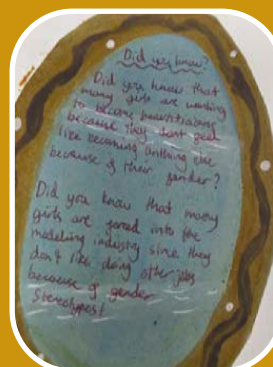 Did you know?
Did you know that
many girls are wanting
to become beauticians
because they dont feel
like becoming anything else
because of their gender?
Did you know that many
girls are forced into the
modeling industry since they
don't like doing other jobs
because of gender
Stereotypes!